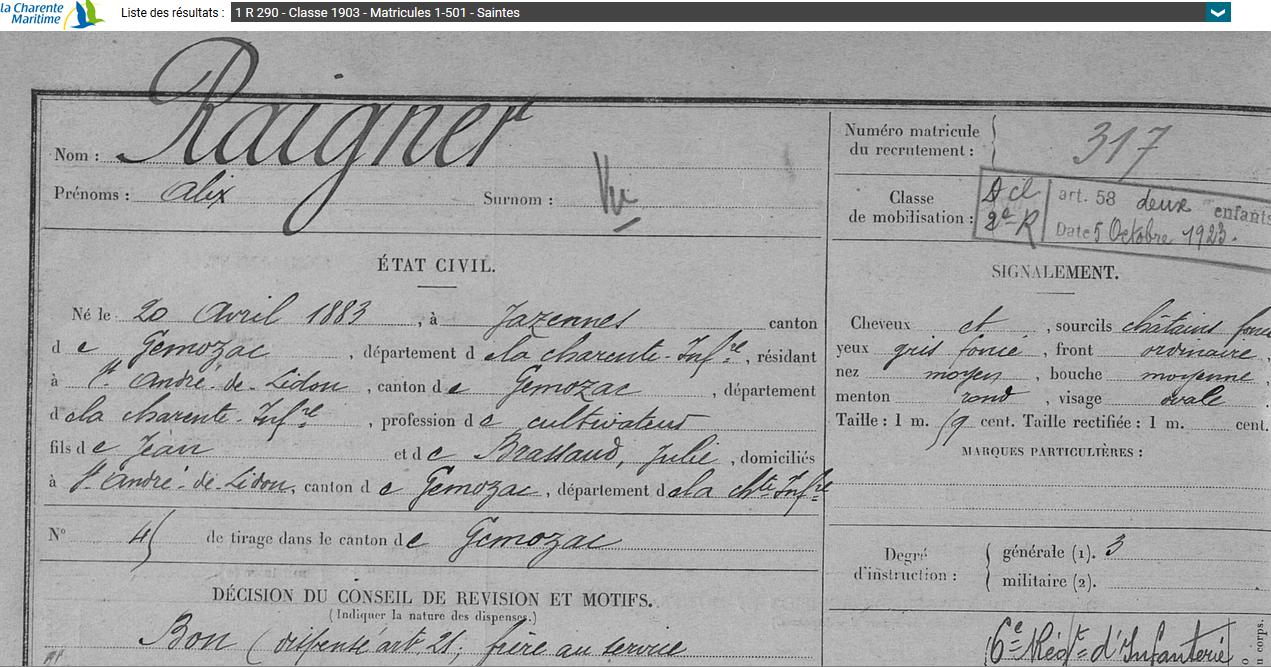 la Charente
Maritime
Liste des résultats : 1 R 290 - Classe 1903 - Matricules 1-501 - Saintes
Nom : Raigner
Prénoms : Alix Surnom : Vu
Numéro matricule
du recrutement : 317
Classe
de mobilisation :
D cl
2e R
art. 58 deux enfants
Date 5 Octobre 1923.
ÉTAT CIVIL.
Né le 20 Avril 1883, à Jazennes canton
de Gemozac, département de la Charente-Infre, résidant
à St André-de-Lidon, canton de Gemozac, département
de la Charente-Infre, profession de cultivateur
fils de Jean et de Brassaud, Julie, domiciliés
à St André-de-Lidon, canton de Gemozac, département de la Chte Infre
N° de tirage dans le canton de Gemozac
DÉCISION DU CONSEIL DE REVISION ET MOTIFS.
(Indiquer la nature des dispenses.)
Bon (dispensé art. 21; frère au service
SIGNALEMENT.
Cheveux et, sourcils châtains foncé
yeux gris foncé, front ordinaire,
nez moyen, bouche moyenne,
menton rond, visage ovale.
Taille : 1 m. cent. Taille rectifiée : 1 m. cent.
MARQUES PARTICULIÈRES :
Degré
d'instruction :
générale (1). 3
militaire (2).
6e Régt d'Infanterie
u corps.